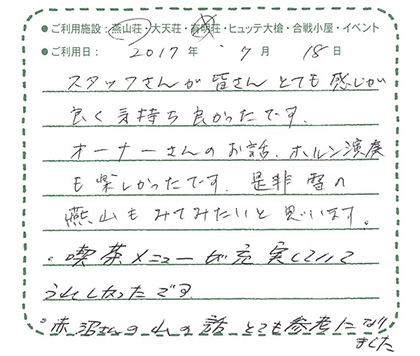 ●ご利用施設:燕山荘・大天荘・有明荘・ヒュッテ大槍・合戦小屋・イベント
●ご利用日: 2017 年 7 月 18 日
スタッフさんが皆さんとても感じが
良く気持ち良かったです。
オーナーさんのお話、ホルン演奏
も楽しかったです。是非雪の
燕山もみてみたいと思います。
・喫茶メニューが充実していて
うれしかったです
・赤沼さんの山の話 とても参考になり
ました